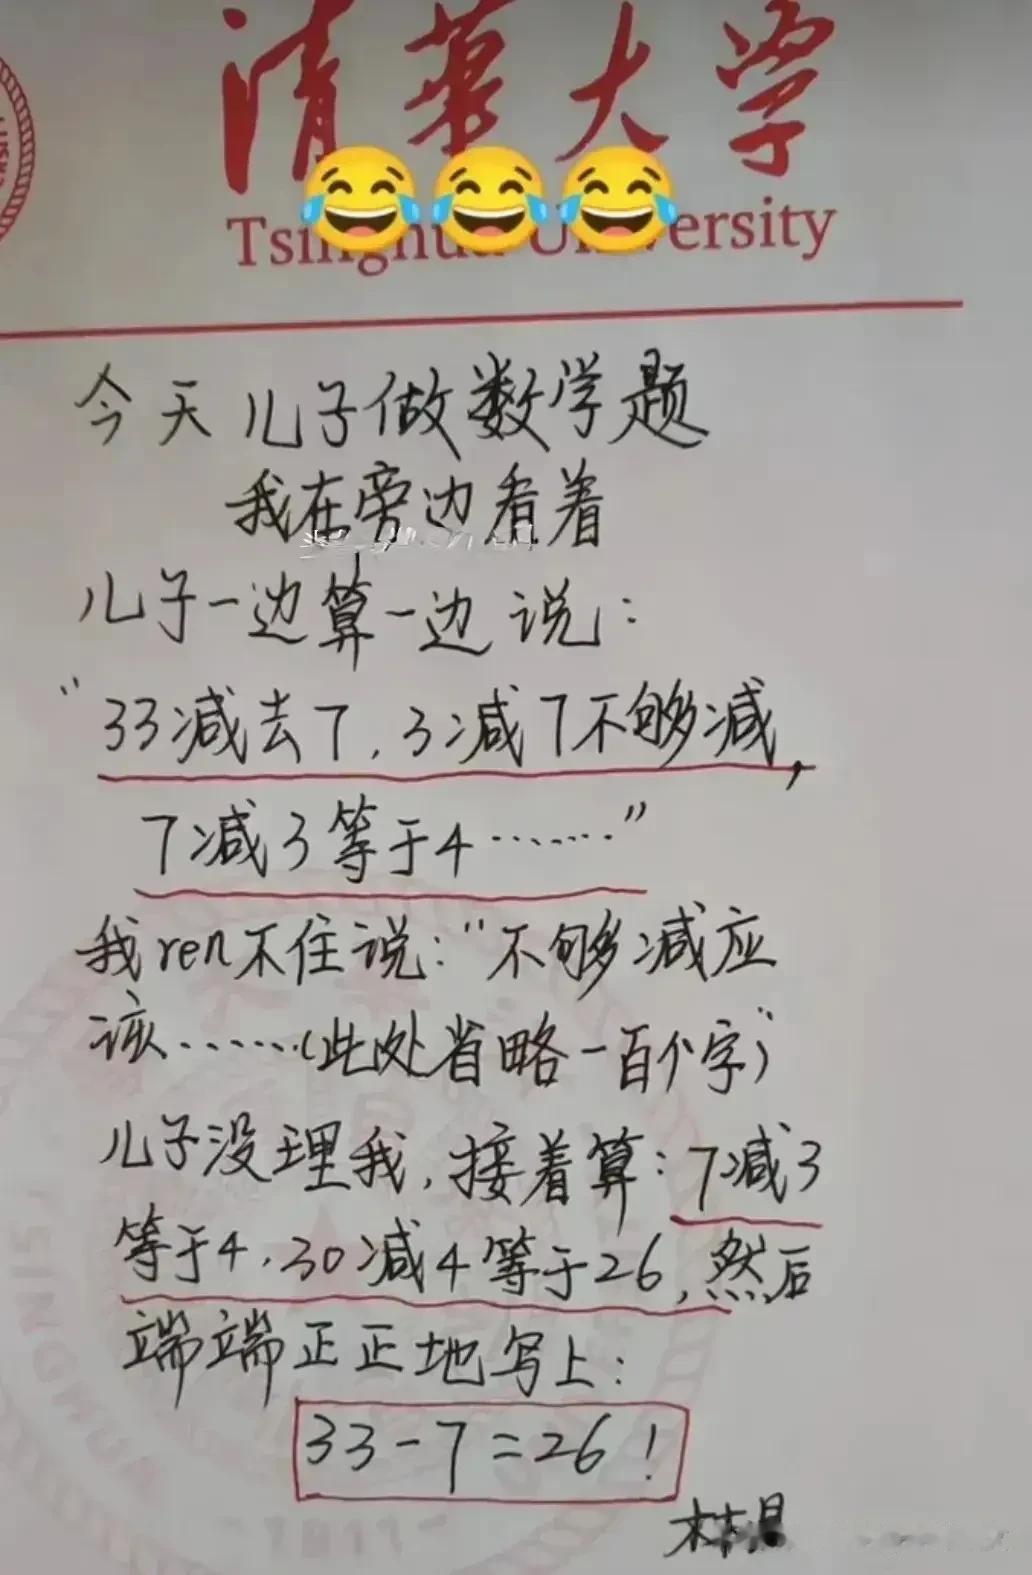 清华大学
Tsinghua University
今天儿子做数学题
我在旁边看着
儿子一边算一边说：
“33减去7，3减7不够减，
7减3等于4……”
我ren不住说：“不够减应
该……（此处省略一百个字）”
儿子没理我，接着算：7减3
等于4，30减4等于26，然后
端端正正地写上：
33-7=26！